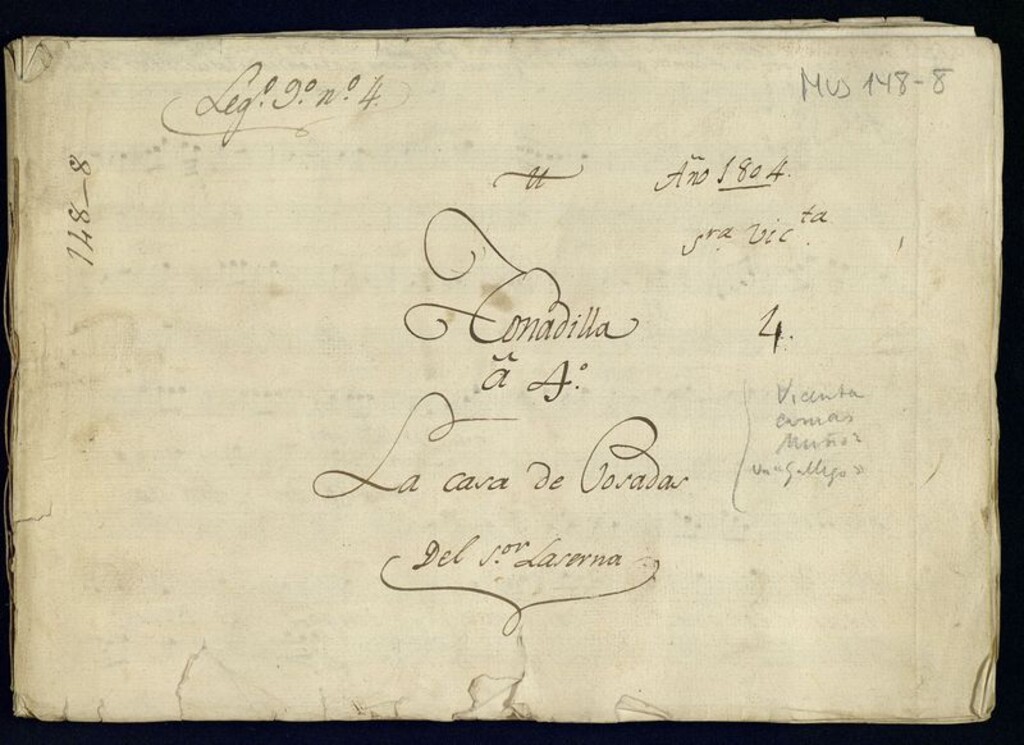 Leg.º 9.º n.º 4.
Mus 148-8
148-8
Año 1804.
Sra. Vic.ta
Tonadilla
4.
â 4.º
La casa de Posadas
Vicenta
Camas
Muñoz
un "Gallego"
Del S.or Laserna